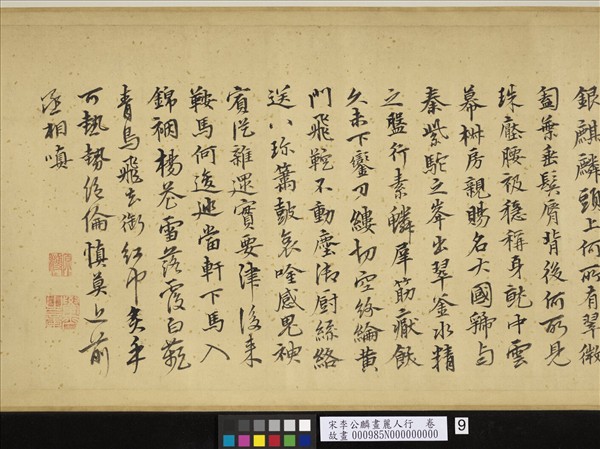 銀麒麟頭上何所有翠微
㔩葉垂鬢脣背後何所見
珠壓腰衱穩稱身就中雲
幕椒房親賜名大國虢与
秦紫駝之峯出翠釜水精
之盤行素鱗犀筋厭飫
久未下鑾刀縷切空紛綸黃
門飛鞚不動塵御厨絲絡
送八珍簫鼓哀吟感鬼神
賓從雜遝實要津後來
鞍馬何逡巡當軒下馬入
錦裀楊花雪落覆白蘋
青鳥飛去銜紅巾炙手
可熱勢絕倫慎莫近前
丞相嗔
宋李公麟畫麗人行 卷
故畫 000985N000000000
9